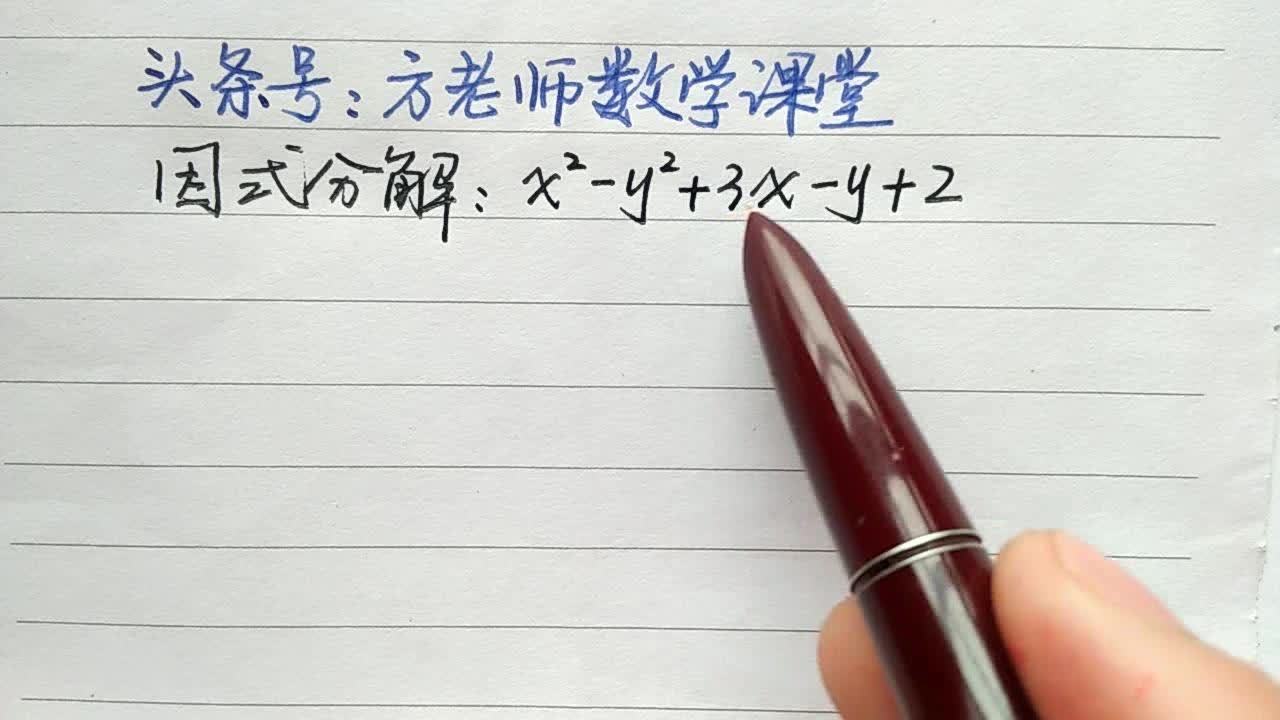 头条号:方老师数学课堂
因式分解:x²-y²+3x-y+2